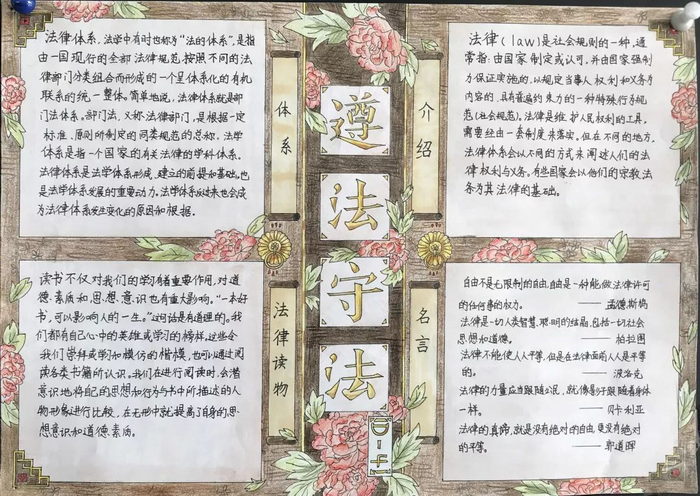 法律体系，法学中有时也称为“法的体系”，是指
由一国现行的全部法律规范按照不同的法
律部门分类组合而形成的一个呈体系化的有机
联系的统一整体。简单地说，法律体系就是部
门法体系。部门法，又称法律部门，是根据一定
标准、原则所制定的同类规范的总称。法学
体系是指一个国家的有关法律的学科体系。
法律体系是法学体系形成、建立的前提和基础，也
是法学体系发展的重要动力。法学体系反过来也会成
为法律体系发生变化的原因和根据。
体系
读书不仅对我们的学习有着重要作用，对道
德素质和思想意识也有重大影响。“一本好
书，可以影响人的一生。”这句话是有道理的。我
们都有自己心中的英雄或学习的榜样，这些令
我们崇拜或学习和模仿的楷模，也可以通过阅
读各类书籍所认识。我们在进行阅读时，会潜
意识地将自己的思想和行为与书中所描述的人
物形象进行比较，在无形中就提高了自身的思
想意识和道德素质。
法律读物
遵
法
守
法
介绍
法律(law)是社会规则的一种，通
常指：由国家制定或认可，并由国家强制
力保证实施的，以规定当事人权利和义务为
内容的，具有普遍约束力的一种特殊行为规
范(社会规范)。法律是维护人民权利的工具，
需要经由一套制度来落实。但在不同的地方，
法律体系会以不同的方式来阐述人们的法
律权利与义务。有些国家会以他们的宗教法
条为其法律的基础。
名言
自由不是无限制的自由，自由是一种能做法律许可
的任何事的权力。——孟德斯鸠
法律是一切人类智慧、聪明的结晶，包括一切社会
思想和道德。——柏拉图
法律不能使人人平等，但是在法律面前人人是平等
的。——波洛克
法律的力量应当跟随公民，就像影子跟随着身体
一样。——贝卡利亚
法律的真谛，就是没有绝对的自由，更没有绝对
的平等。——郭道晖